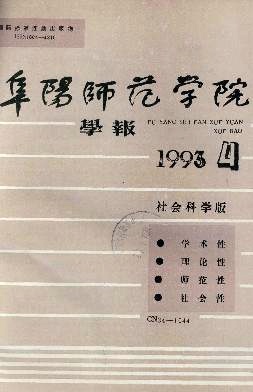 阜陽师范学院
學報
FU YANG SHI FAN XUE YUAN
XUE BAO
1993 4
社会科学版
● 学术性
● 理论性
● 师范性
● 社会性
CN34—1044